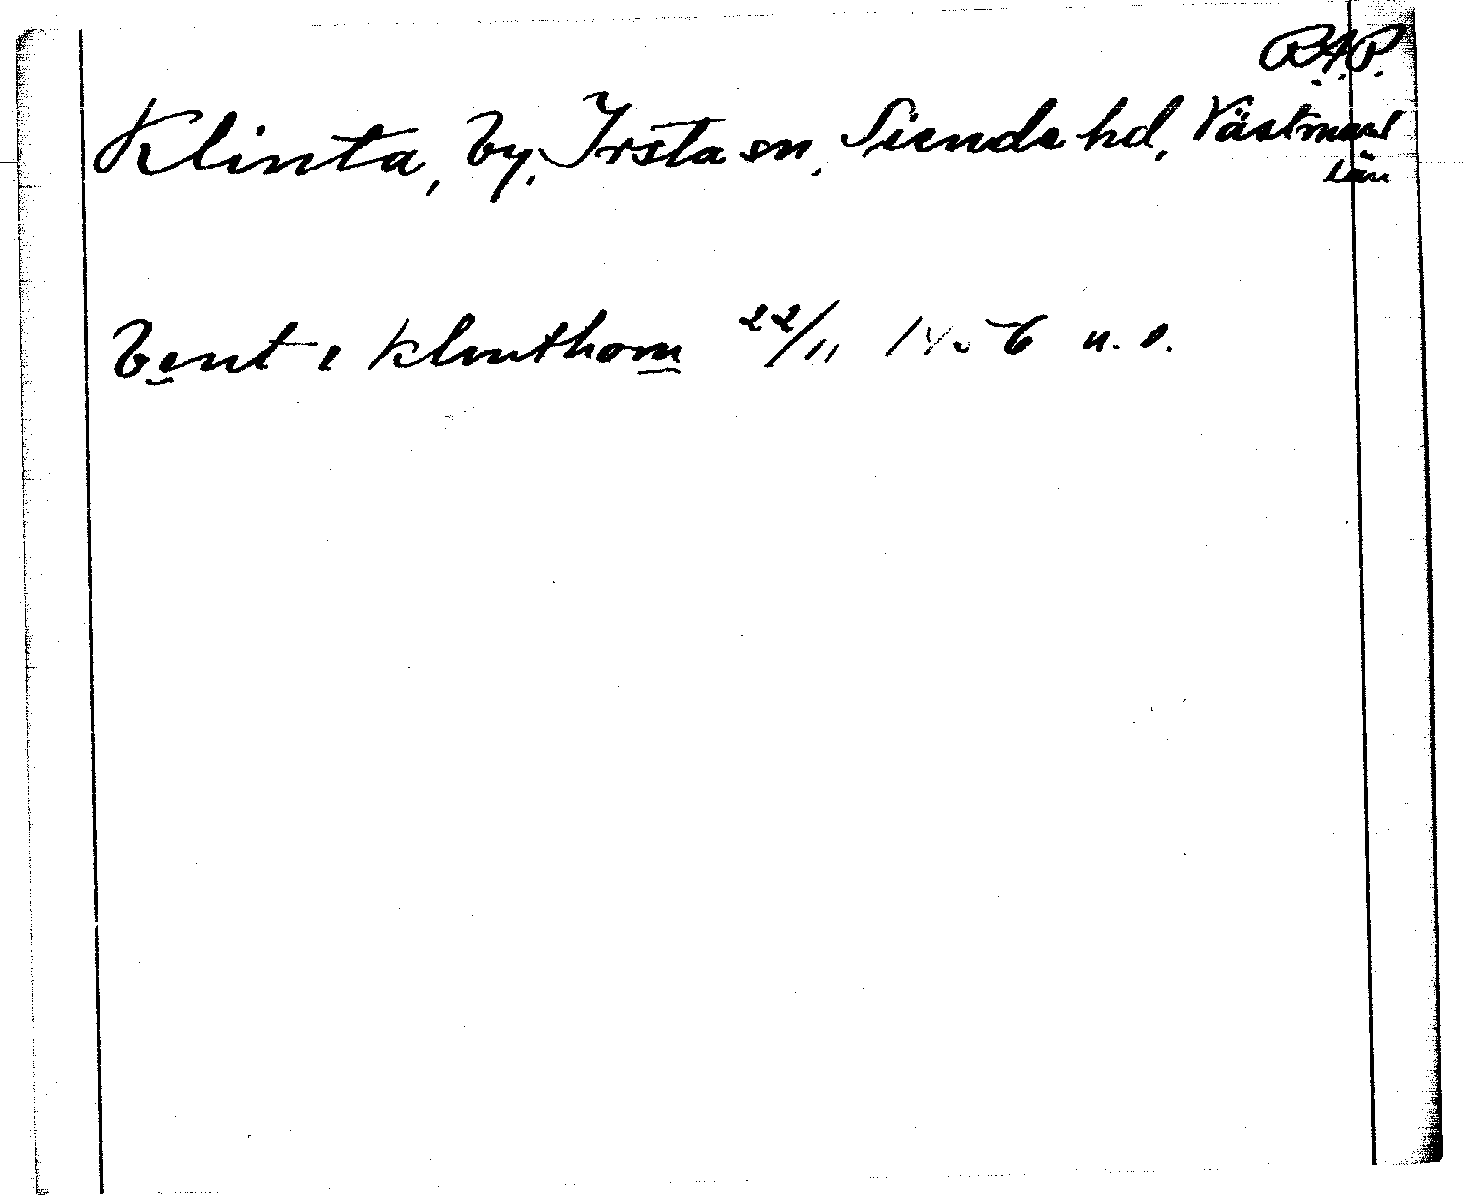 R.A.P.
Klinta, by, Irsta sn, Siende hd, Västmanl
län
bent i klinthom 22/11 1456 u. s.